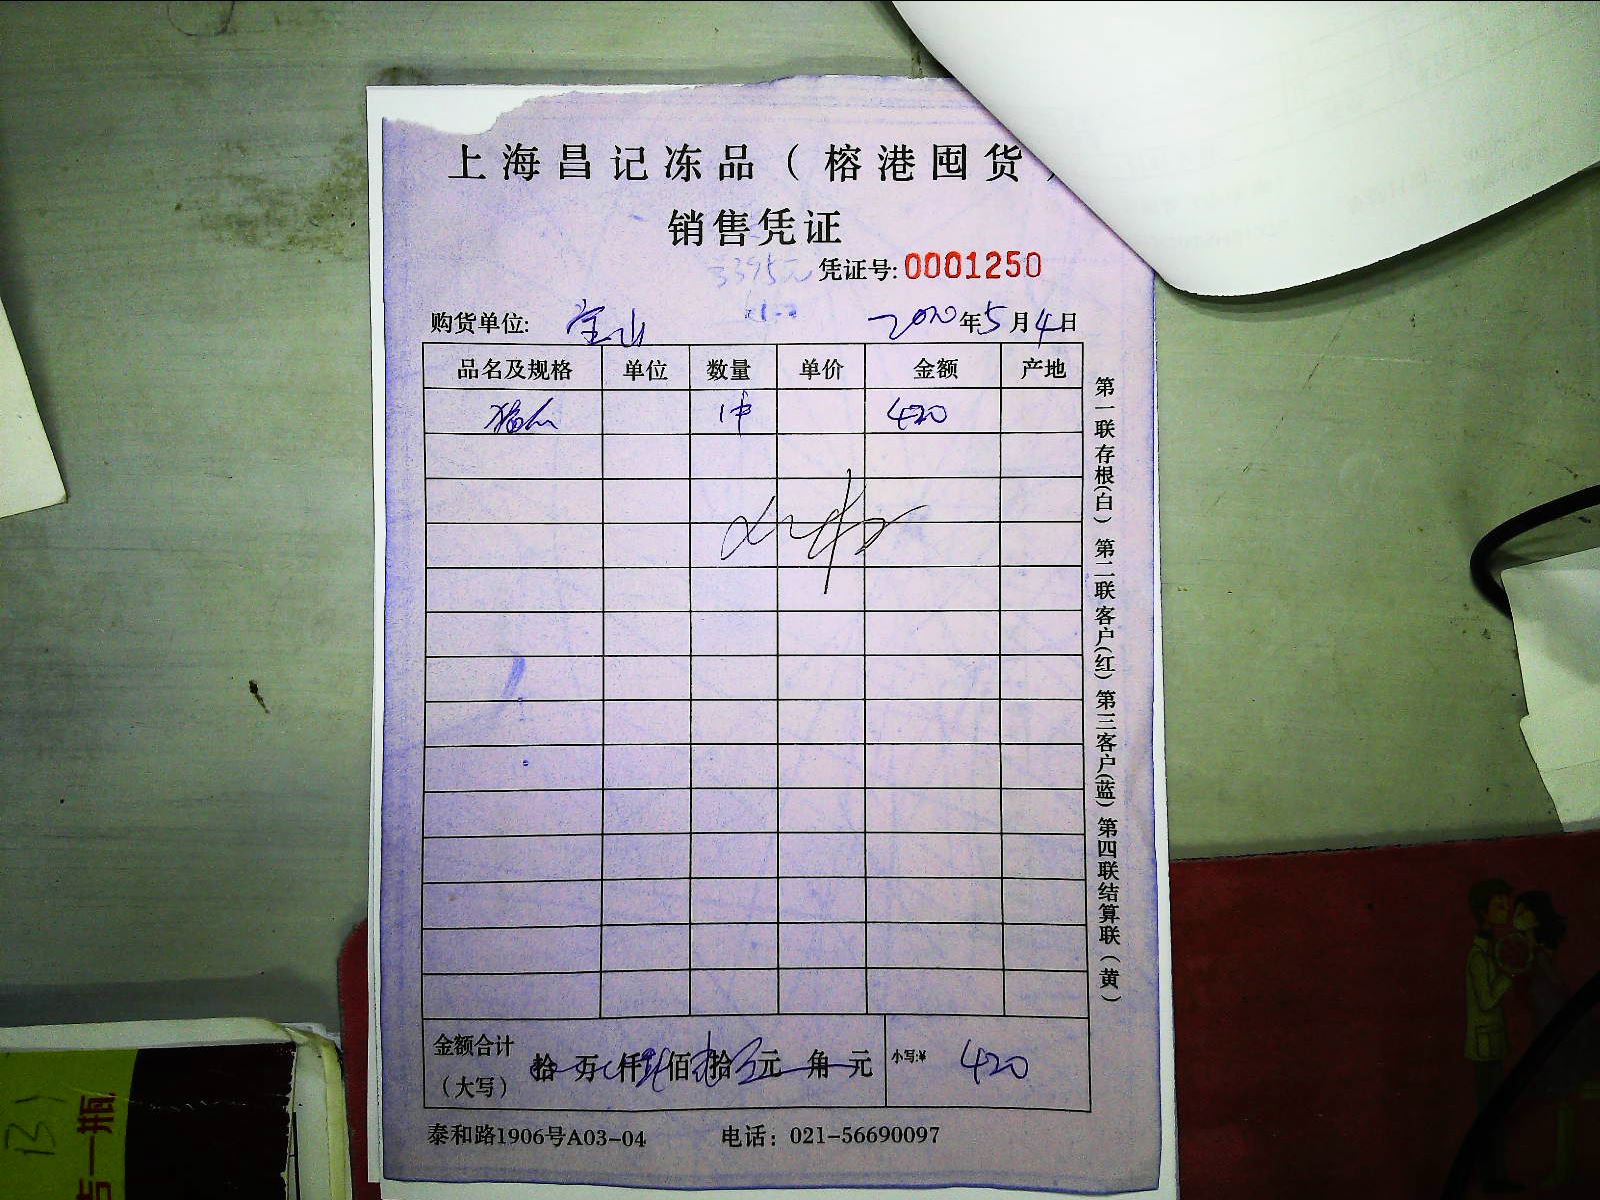 上海昌记冻品（榕港囤货）
销售凭证
3395元
凭证号: 0001250
购货单位: 宝山 2020年5月4日
品名及规格 单位 数量 单价 金额 产地
1件 420
第一联存根(白) 第二联客户(红) 第三客户(蓝) 第四联结算联(黄)
金额合计 拾万仟佰拾元角元 小写:¥ 420
（大写）
泰和路1906号A03-04 电话: 021-56690097
一瓶